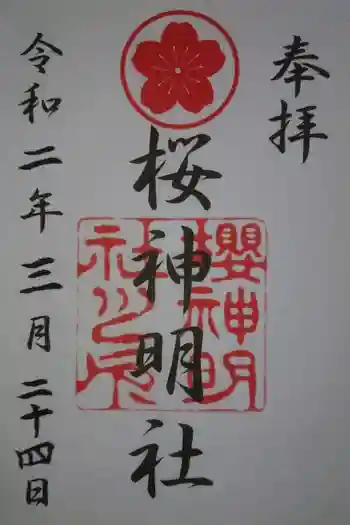 奉拝
桜神明社
櫻神明社之印
令和二年三月二十四日